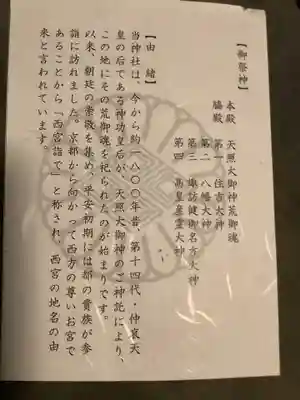 【御祭神】
本殿 天照大御神荒御魂
脇殿 第一 住吉大神
第二 八幡大神
第三 諏訪健御名方大神
第四 高皇産霊大神
【由緒】
当神社は、今から約一八〇〇年昔、第十四代・仲哀天
皇の后である神功皇后が、天照大御神のご神託により、
この地にその荒御魂を祀られたのが始まりです。
以来、朝廷の崇敬を集め、平安初期には都の貴族が参
詣に訪れました。京都から向かって西方の尊いお宮で
あることから「西宮詣で」と称され、西宮の地名の由
来と言われています。